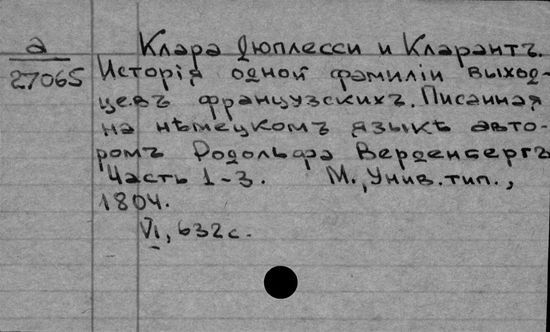 а Клара Дюплесси и Кларантъ.
27065 Исторія одной фамиліи выход-
цевъ французскихъ. Писанная
на нѣмецкомъ языкѣ авто-
ромъ Родольфа Верденбергъ
Часть 1-3. М., Унив. тип.,
1804.
VI, 632 с.